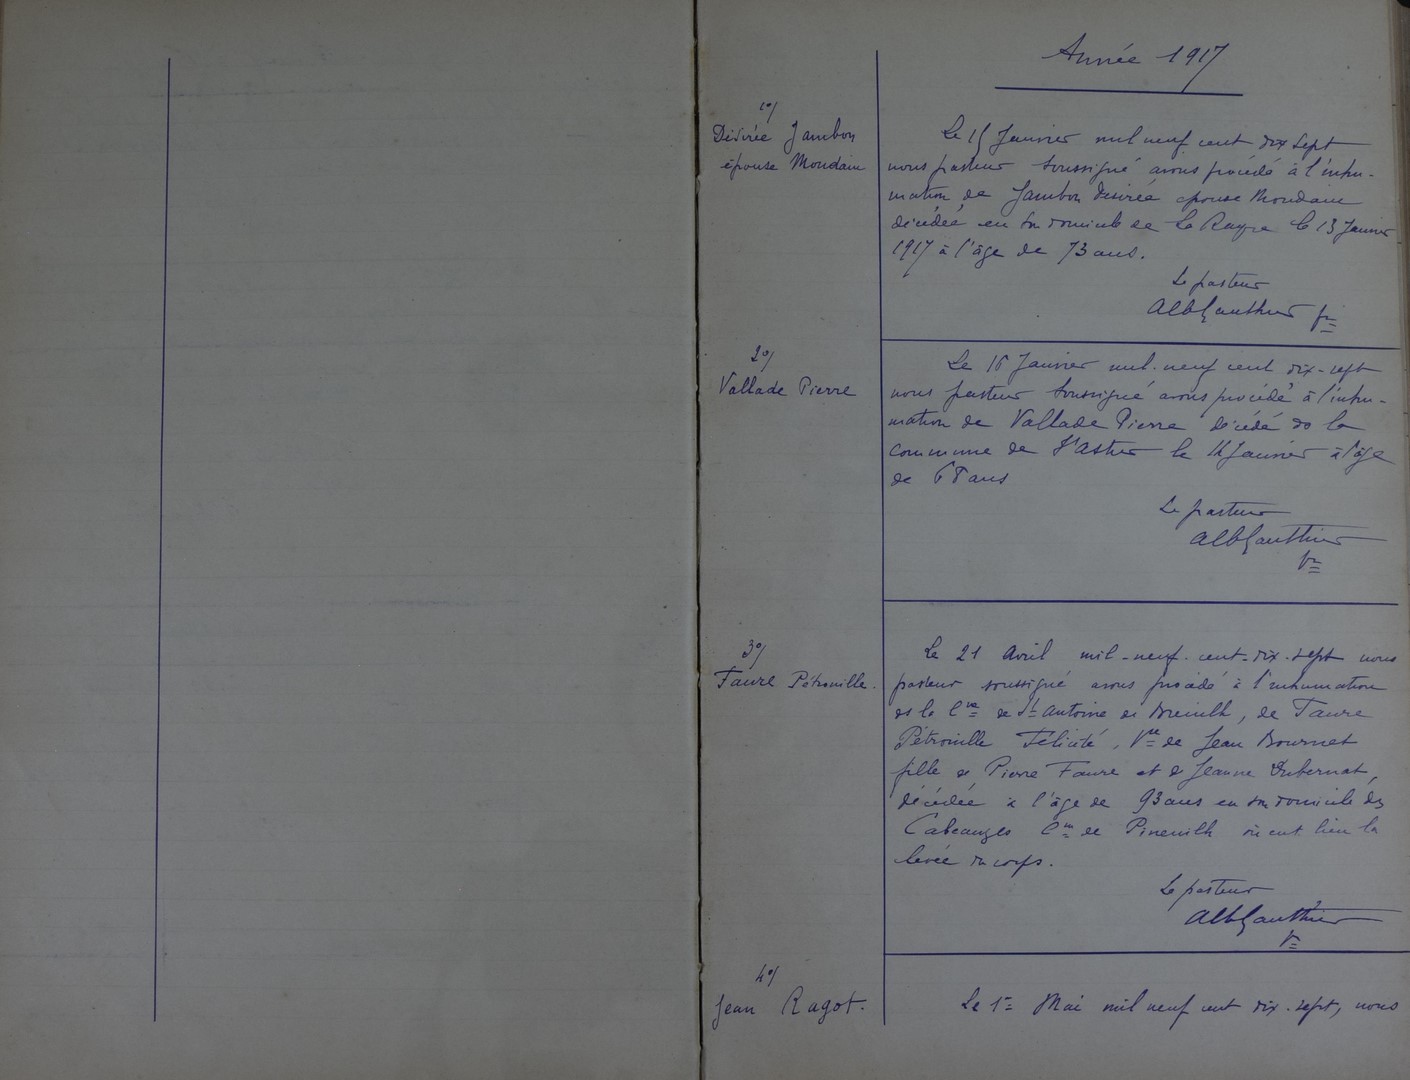 Année 1917
1°/
Désirée Jambon
épouse Mondain
Le 15 Janvier mil neuf cent dix sept
nous pasteur soussigné avons procédé à l'inhu-
mation de Jambon Désirée épouse Mondain
décédée en son domicile de La Rayre le 13 Janvier
1917 à l'âge de 73 ans.
Le pasteur
Alb Gauthier
2°/
Vallade Pierre
Le 16 Janvier mil-neuf cent dix-sept
nous pasteur soussigné avons procédé à l'inhu-
mation de Vallade Pierre décédé ds la
commune de St Astier le 14 Janvier à l'âge
de 68 ans
Le pasteur
Alb Gauthier
3°/
Faure Pétronille.
Le 21 Avril mil-neuf-cent-dix-sept nous
pasteur soussigné avons procédé à l'inhumation
ds la Cne de St Antoine de Breuilh, de Faure
Pétronille Félicité, Vve de Jean Bournet
fille de Pierre Faure et de Jeanne Dubernat,
décédée à l'âge de 93 ans en son domicile des
Cabeauges Cne de Pineuilh où eut lieu la
levée du corps.
Le pasteur
Alb Gauthier
4°/
Jean Ragot.
Le 1er Mai mil neuf cent dix-sept, nous